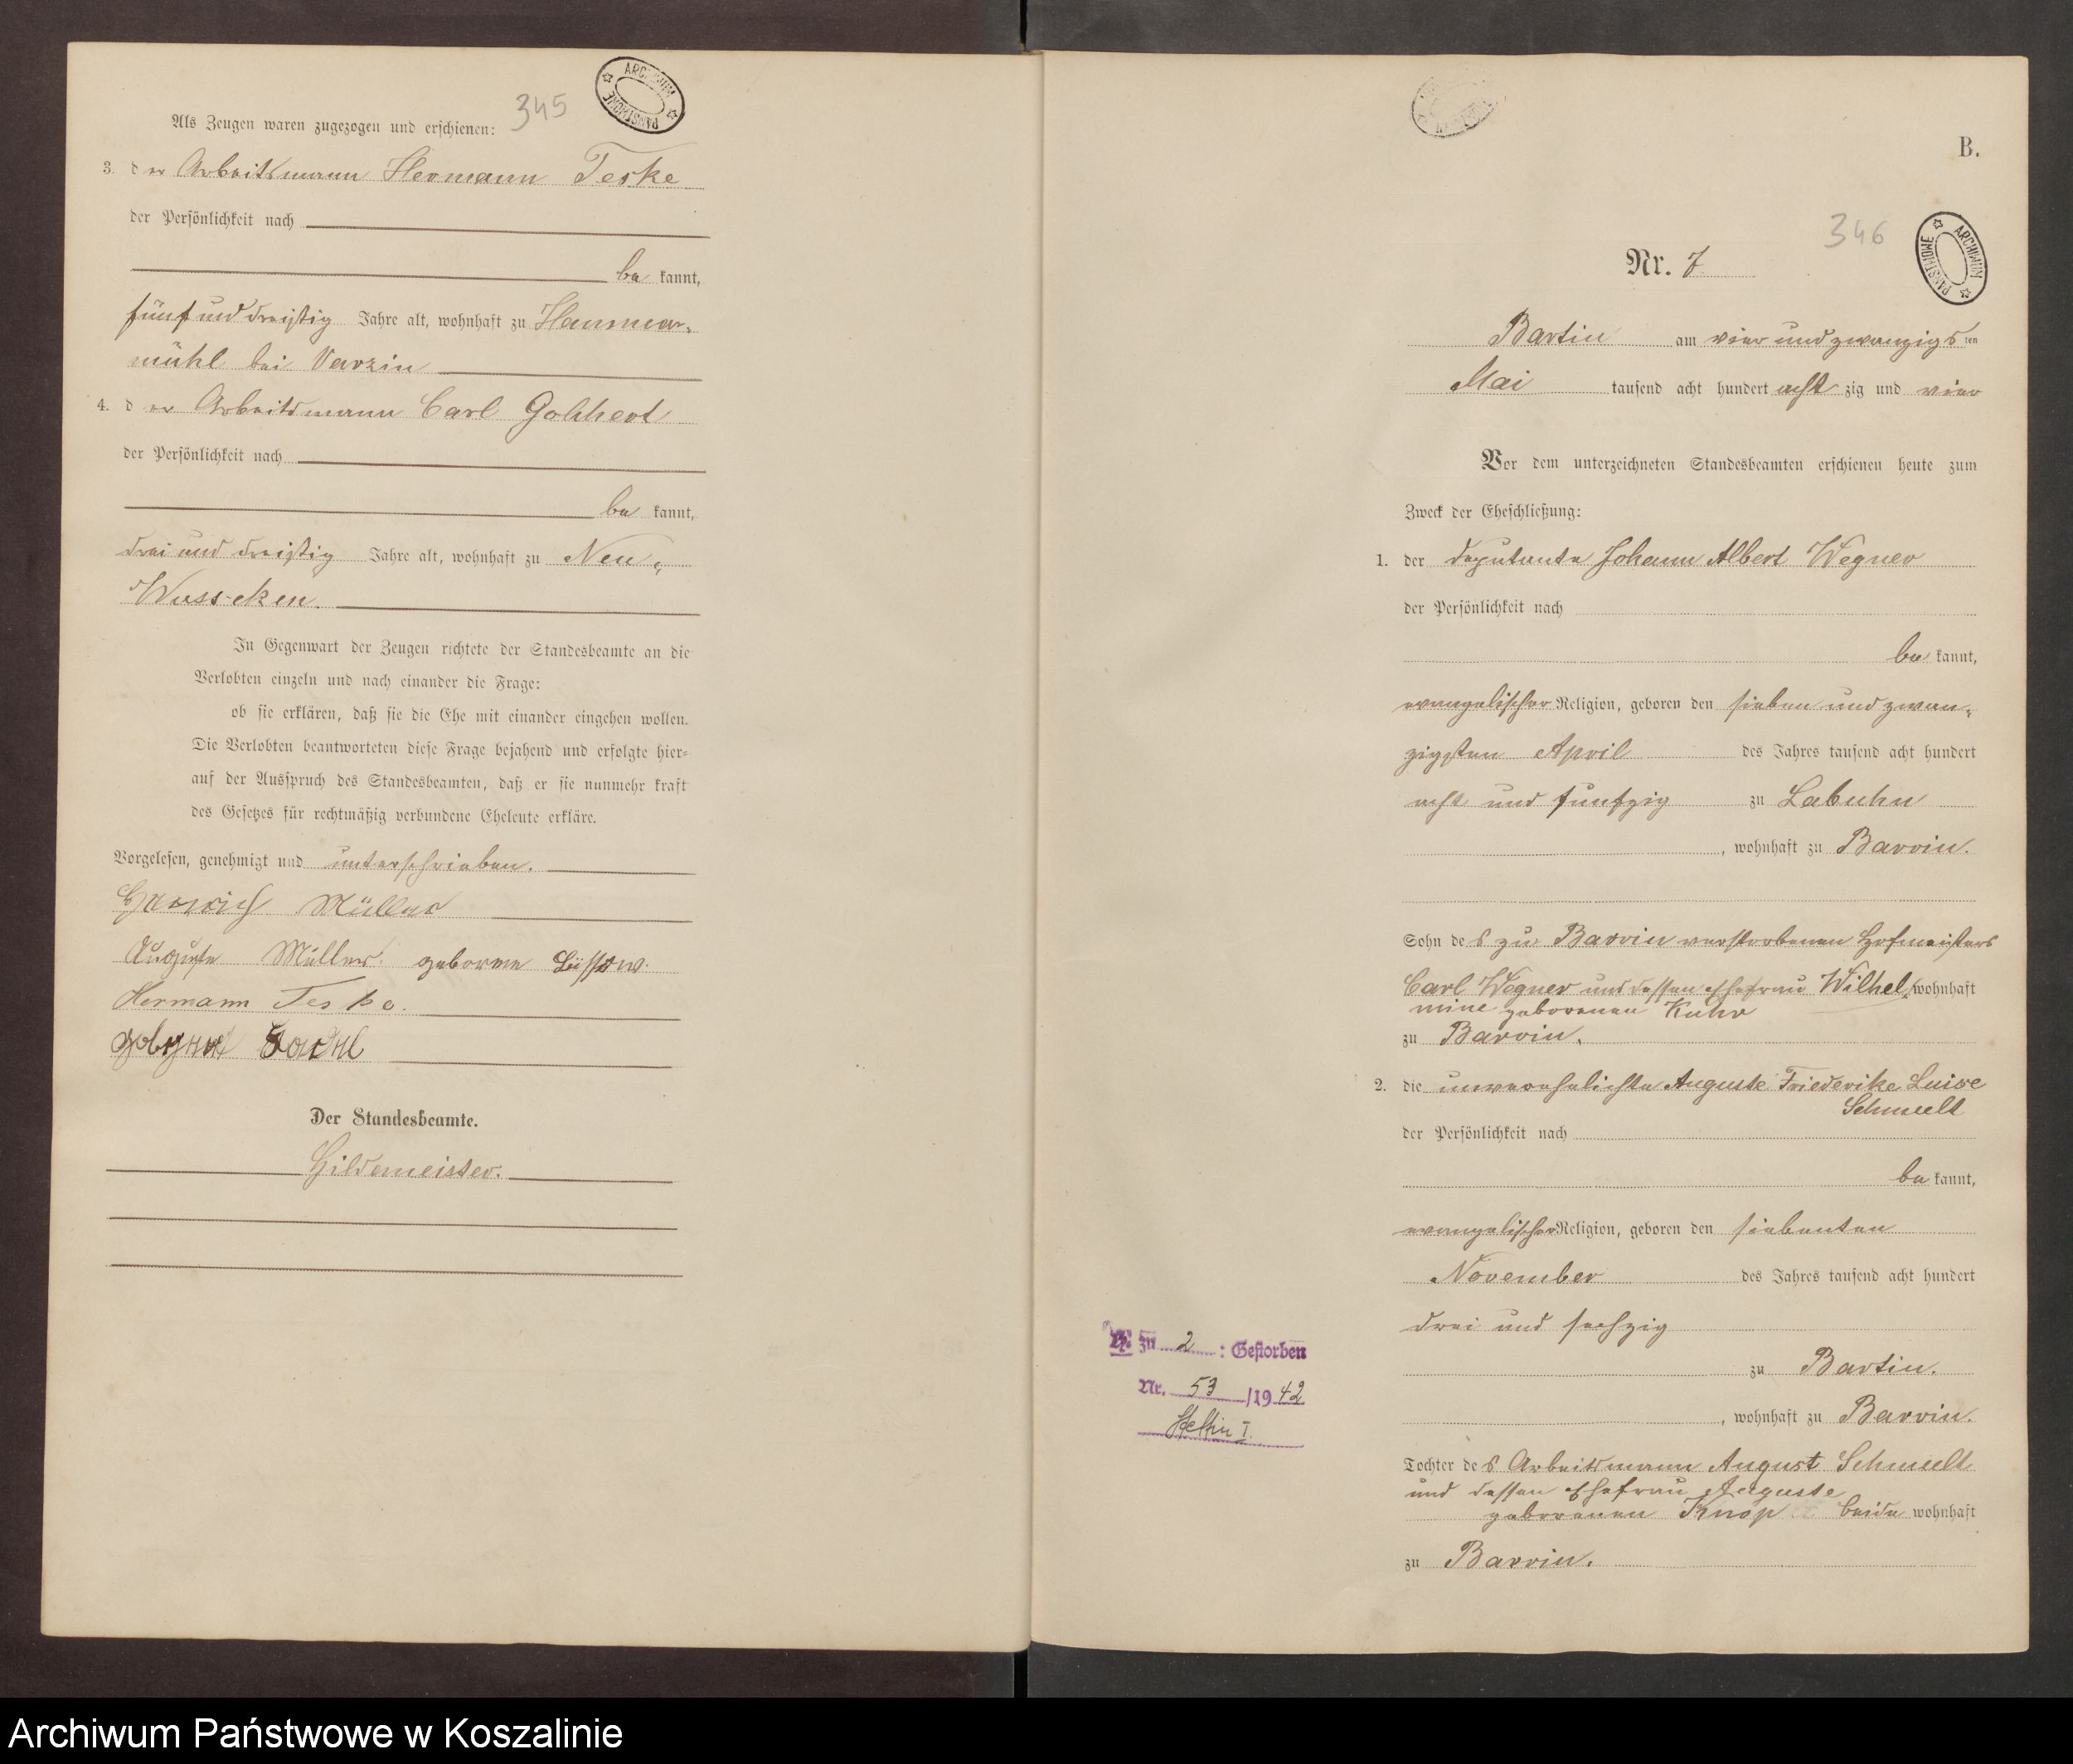 345
ARCHIWUM PAŃSTWOWE
Als Zeugen waren zugezogen und erschienen:
3. der Arbeitsmann Hermann Teske
der Persönlichkeit nach
be kannt,
fünf und dreißig Jahre alt, wohnhaft zu Hammer-
mühl bei Varzin
4. der Arbeitsmann Carl Gohhert
der Persönlichkeit nach
be kannt,
drei und dreißig Jahre alt, wohnhaft zu Neu-
Wusseken.
In Gegenwart der Zeugen richtete der Standesbeamte an die
Verlobten einzeln und nach einander die Frage:
ob sie erklären, daß sie die Ehe mit einander eingehen wollen.
Die Verlobten beantworteten diese Frage bejahend und erfolgte hier-
auf der Ausspruch des Standesbeamten, daß er sie nunmehr kraft
des Gesetzes für rechtmäßig verbundene Eheleute erkläre.
Vorgelesen, genehmigt und unterschrieben.
Müller
Auguste Müller geborne Lüssow.
Hermann Teske.
Der Standesbeamte.
Hildemeister.
B.
346
ARCHIWUM PAŃSTWOWE
Nr. 7
Bartin am vier und zwanzigsten
Mai tausend acht hundert acht zig und vier
Vor dem unterzeichneten Standesbeamten erschienen heute zum
Zweck der Eheschließung:
1. der Deputante Johann Albert Wegner
der Persönlichkeit nach
be kannt,
evangelischer Religion, geboren den sieben und zwan-
zigsten April des Jahres tausend acht hundert
acht und fünfzig zu Labuhn
, wohnhaft zu Barvin.
Sohn des zu Barvin verstorbenen Hofmeisters
Carl Wegner und dessen Ehefrau Wilhel- wohnhaft
mine geborenen Kuhr
zu Barvin.
2. die unverehelichte Auguste Friederike Luise
Schmelt
der Persönlichkeit nach
be kannt,
evangelischer Religion, geboren den siebenten
November des Jahres tausend acht hundert
drei und sechzig
zu Bartin.
, wohnhaft zu Barvin.
Tochter des Arbeitsmann August Schmelt
und dessen Ehefrau Auguste
geborenen Knop beide wohnhaft
zu Barvin.
zu 2 : Gestorben
Nr. 53 /1942
Stettin I.
Archiwum Państwowe w Koszalinie